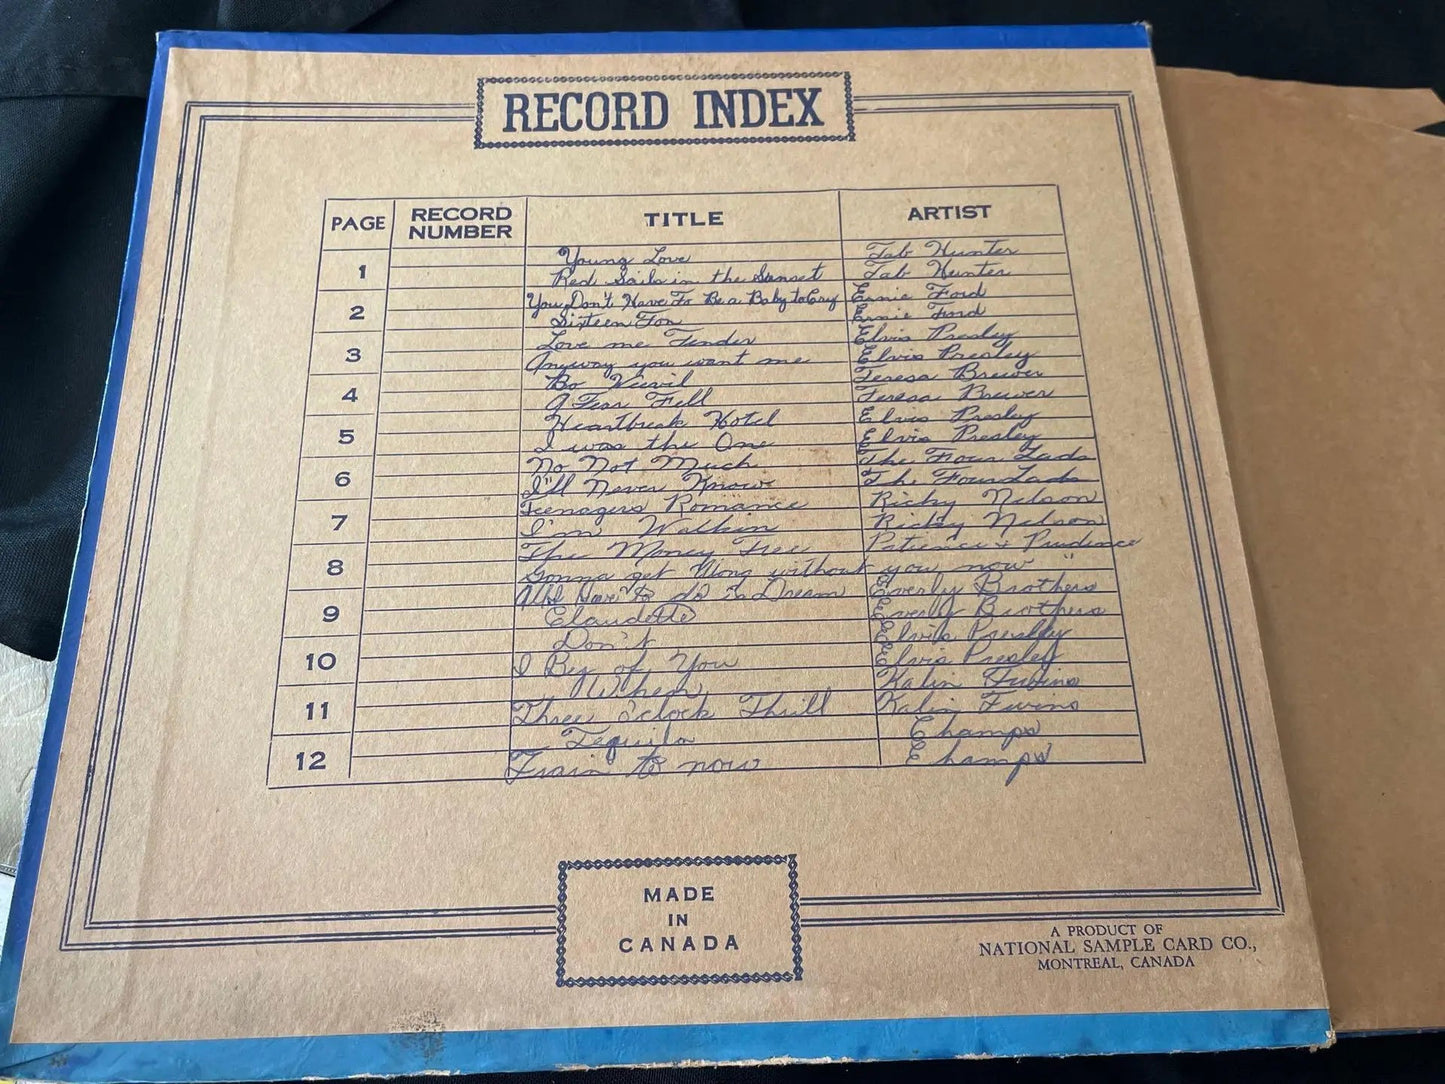 RECORD INDEX
PAGE RECORD NUMBER TITLE ARTIST
Young Love Tab Hunter
1 Red Sails in the Sunset Tab Hunter
You Don't Have To Be a Baby to Cry Ernie Ford
2 Sixteen Ton Ernie Ford
Love me Tender Elvis Presley
3 Anyway you want me Elvis Presley
Bo Weevil Teresa Brewer
4 A Tear Fell Teresa Brewer
Heartbreak Hotel Elvis Presley
5 I was the One Elvis Presley
No Not Much The Four Lads
6 I'll Never Know The Four Lads
Teenagers Romance Ricky Nelson
7 I'm Walkin Ricky Nelson
The Money Tree Patience + Prudence
8 Gonna get Along without you now "
All I Have To do is Dream Everly Brothers
9 Claudette Everly Brothers
Don't Elvis Presley
10 I Beg of You Elvis Presley
When Kalin Twins
11 Three O'clock Thrill Kalin Twins
Tequila Champs
12 Train to now Champs
MADE
IN
CANADA
A PRODUCT OF
NATIONAL SAMPLE CARD CO.,
MONTREAL, CANADA